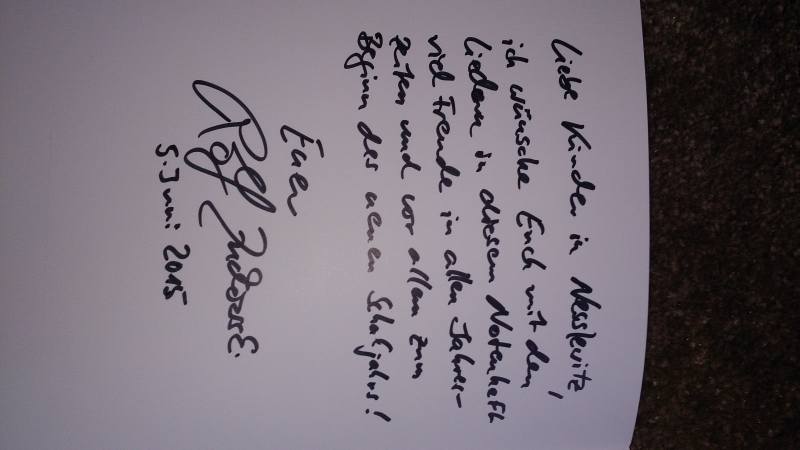 Liebe Kinder in Nesslewitz,
ich wünsche Euch mit den
Liedern in diesem Notenheft
viel Freude in allen Jahres-
zeiten und vor allem zum
Beginn des neuen Schuljahrs!
Euer
Rolf
5. Juni 2015